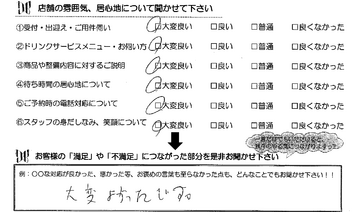 店舗の雰囲気、居心地について聞かせて下さい
①受付・出迎え・ご用件伺い □大変良い □良い □普通 □良くなかった
②ドリンクサービスメニュー・お伺い方 □大変良い □良い □普通 □良くなかった
③商品や整備内容に対するご説明 □大変良い □良い □普通 □良くなかった
④待ち時間の居心地について □大変良い □良い □普通 □良くなかった
⑤ご予約時の電話対応について □大変良い □良い □普通 □良くなかった
⑥スタッフの身だしなみ、笑顔について □大変良い □良い □普通 □良くなかった
お客様の「満足」や「不満足」につながった部分を是非お聞かせ下さい
例：○○な対応が良かった、感じた等、お褒めの言葉も至らなかった点も、どんなことでもお聞かせ下さい！！
大変よかったです。